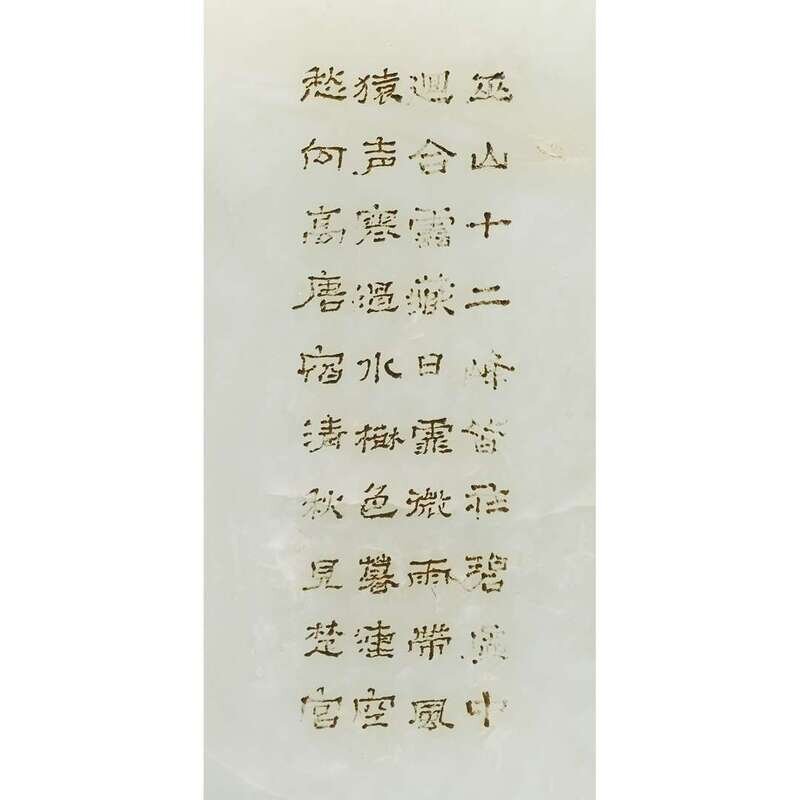 巫山十二峰皆在碧虛中
迴合雲藏日霏微雨帶風
猿声寒過水樹色暮連空
愁向高唐宿清秋見楚宮